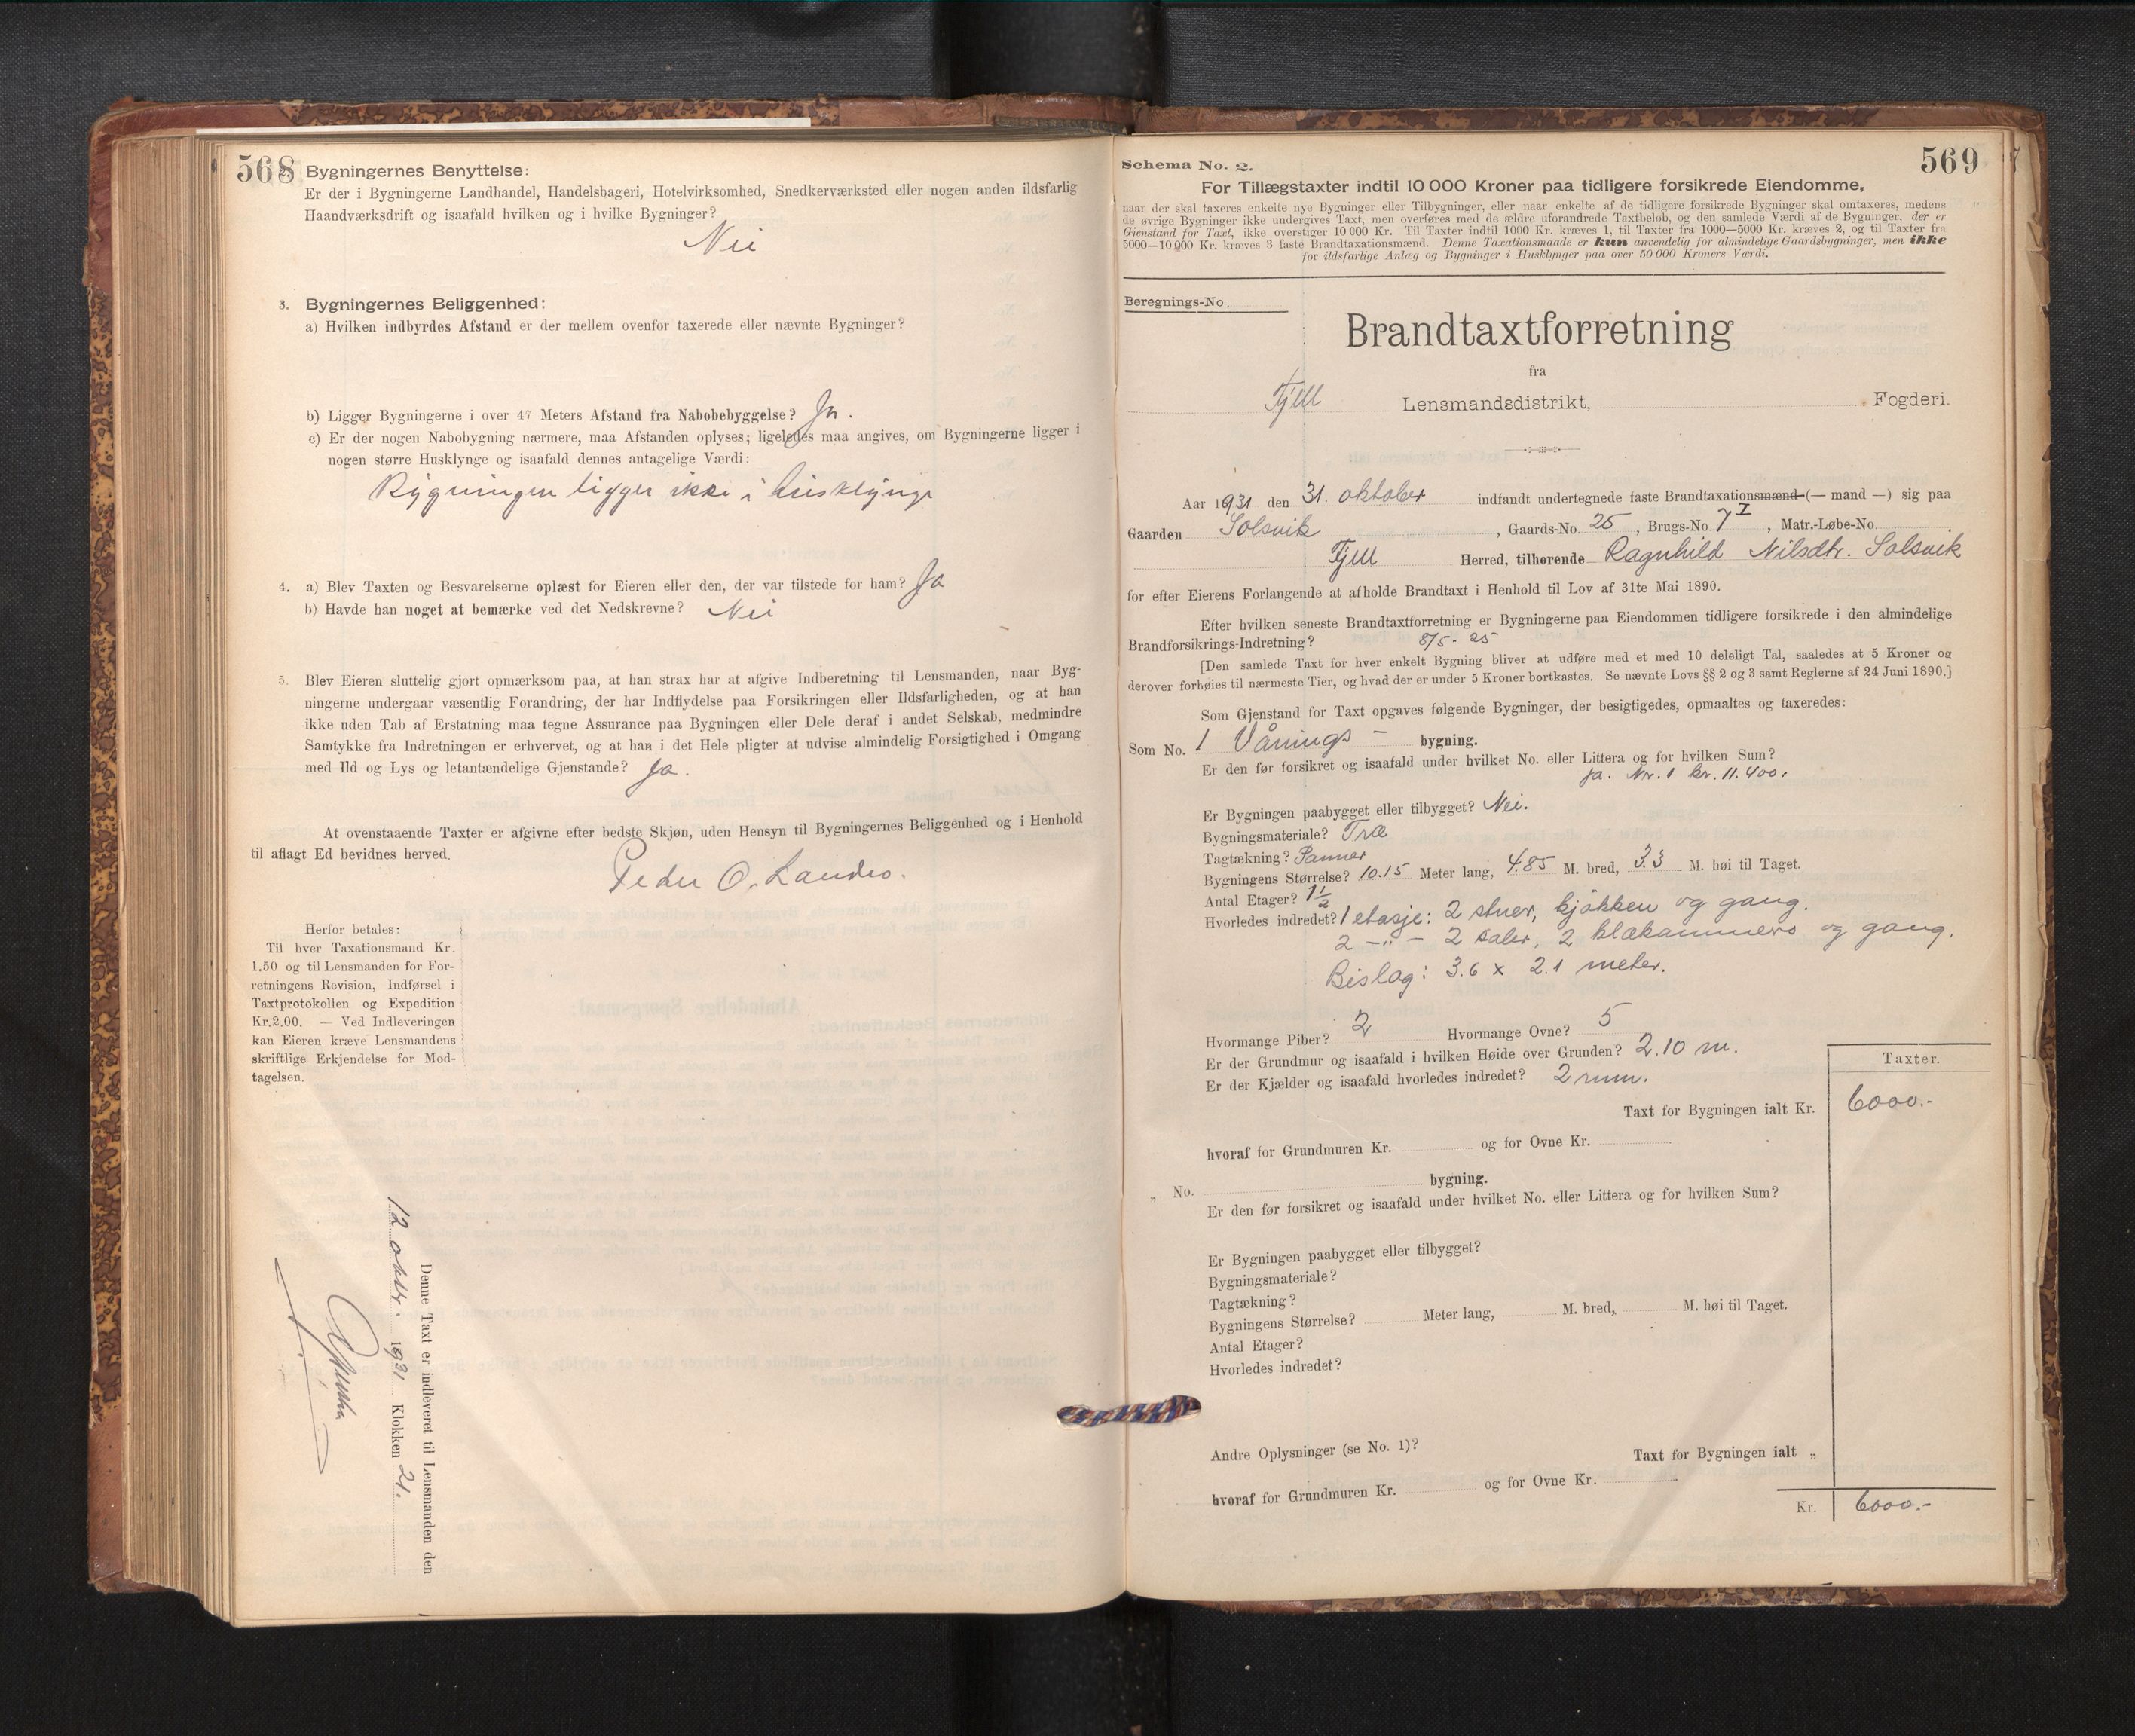 568
2. Bygningernes Benyttelse:
Er der i Bygningerne Landhandel, Handelsbageri, Hotelvirksomhed, Snedkerværksted eller nogen anden ildsfarlig
Haandværksdrift og isaafald hvilken og i hvilke Bygninger?
Nei
3. Bygningernes Beliggenhed:
a) Hvilken indbyrdes Afstand er der mellem ovenfor taxerede eller nævnte Bygninger?
b) Ligger Bygningerne i over 47 Meters Afstand fra Nabobebyggelse? Ja.
c) Er der nogen Nabobygning nærmere, maa Afstanden oplyses; ligeledes maa angives, om Bygningerne ligger i
nogen større Husklynge og isaafald dennes antagelige Værdi:
Bygningen ligger ikke i husklynge
4. a) Blev Taxten og Besvarelserne oplæst for Eieren eller den, der var tilstede for ham? Ja
b) Havde han noget at bemærke ved det Nedskrevne? Nei
5. Blev Eieren sluttelig gjort opmærksom paa, at han strax har at afgive Indberetning til Lensmanden, naar Byg-
ningerne undergaar væsentlig Forandring, der har Indflydelse paa Forsikringen eller Ildsfarligheden, og at han
ikke uden Tab af Erstatning maa tegne Assurance paa Bygningen eller Dele deraf i andet Selskab, medmindre
Samtykke fra Indretningen er erhvervet, og at han i det Hele pligter at udvise almindelig Forsigtighed i Omgang
med Ild og Lys og letantændelige Gjenstande? Ja.
At ovenstaaende Taxter er afgivne efter bedste Skjøn, uden Hensyn til Bygningernes Beliggenhed og i Henhold
til aflagt Ed bevidnes herved.
Peder O. Landro.
Herfor betales:
Til hver Taxationsmand Kr.
1.50 og til Lensmanden for For-
retningens Revision, Indførsel i
Taxtprotokollen og Expedition
Kr.2.00. — Ved Indleveringen
kan Eieren kræve Lensmandens
skriftlige Erkjendelse for Mod-
tagelsen.
Denne Taxt er indleveret til Lensmanden den
12 oktbr. 1931 Klokken 21.
569
Schema No. 2.
For Tillægstaxter indtil 10 000 Kroner paa tidligere forsikrede Eiendomme,
naar der skal taxeres enkelte nye Bygninger eller Tilbygninger, eller naar enkelte af de tidligere forsikrede Bygninger skal omtaxeres, medens
de øvrige Bygninger ikke undergives Taxt, men overføres med de ældre uforandrede Taxtbeløb, og den samlede Værdi af de Bygninger, der er
Gjenstand for Taxt, ikke overstiger 10 000 Kr. Til Taxter indtil 1000 Kr. kræves 1, til Taxter fra 1000—5000 Kr. kræves 2, og til Taxter fra
5000—10 000 Kr. kræves 3 faste Brandtaxationsmænd. Denne Taxationsmaade er kun anvendelig for almindelige Gaardsbygninger, men ikke
for ildsfarlige Anlæg og Bygninger i Husklynger paa over 50 000 Kroners Værdi.
Beregnings-No.
Brandtaxtforretning
fra
Fjell Lensmandsdistrikt, Fogderi.
Aar 1931 den 31. oktober indfandt undertegnede faste Brandtaxationsmænd (— mand —) sig paa
Gaarden Solsvik, Gaards-No. 25, Brugs-No. 7 I, Matr.-Løbe-No.
Fjell Herred, tilhørende Ragnhild Nilsdtr. Solsvik
for efter Eierens Forlangende at afholde Brandtaxt i Henhold til Lov af 31te Mai 1890.
Efter hvilken seneste Brandtaxtforretning er Bygningerne paa Eiendommen tidligere forsikrede i den almindelige
Brandforsikrings-Indretning? 8/5-25
[Den samlede Taxt for hver enkelt Bygning bliver at udføre med et med 10 deleligt Tal, saaledes at 5 Kroner og
derover forhøies til nærmeste Tier, og hvad der er under 5 Kroner bortkastes. Se nævnte Lovs §§ 2 og 3 samt Reglerne af 24 Juni 1890.]
Som Gjenstand for Taxt opgaves følgende Bygninger, der besigtigedes, opmaaltes og taxeredes:
Som No. 1 Vånings- bygning.
Er den før forsikret og isaafald under hvilket No. eller Littera og for hvilken Sum?
Ja. Nr. 1 kr. 11.400.
Er Bygningen paabygget eller tilbygget? Nei.
Bygningsmateriale? Træ
Tagtækning? Panner
Bygningens Størrelse? 10.15 Meter lang, 4.85 M. bred, 3.3 M. høi til Taget.
Antal Etager? 1 1/2
Hvorledes indredet? 1 etasje: 2 stuer, kjøkken og gang.
2 -"- 2 saler, 2 klækammers og gang.
Bislag: 3.6 x 2.1 meter.
Hvormange Piber? 2 Hvormange Ovne? 5
Er der Grundmur og isaafald i hvilken Høide over Grunden? 2.10 m.
Er der Kjælder og isaafald hvorledes indredet? 2 rum.
Taxter.
Taxt for Bygningen ialt Kr. 6000.-
hvoraf for Grundmuren Kr. og for Ovne Kr.
„ No. bygning.
Er den før forsikret og isaafald under hvilket No. eller Littera og for hvilken Sum?
Er Bygningen paabygget eller tilbygget?
Bygningsmateriale?
Tagtækning?
Bygningens Størrelse? Meter lang, M. bred, M. høi til Taget.
Antal Etager?
Hvorledes indredet?
Andre Oplysninger (se No. 1)? Taxt for Bygningen ialt „
hvoraf for Grundmuren Kr. og for Ovne Kr.
Kr. 6000.-